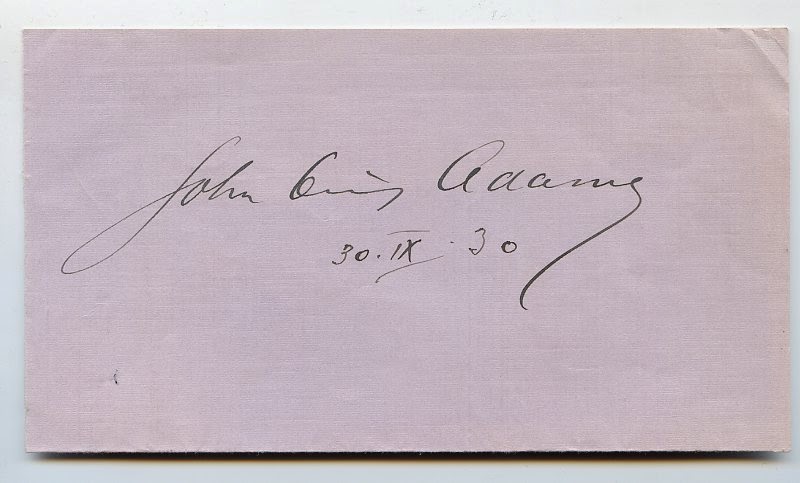 John Quincy Adams
30. IX. 30